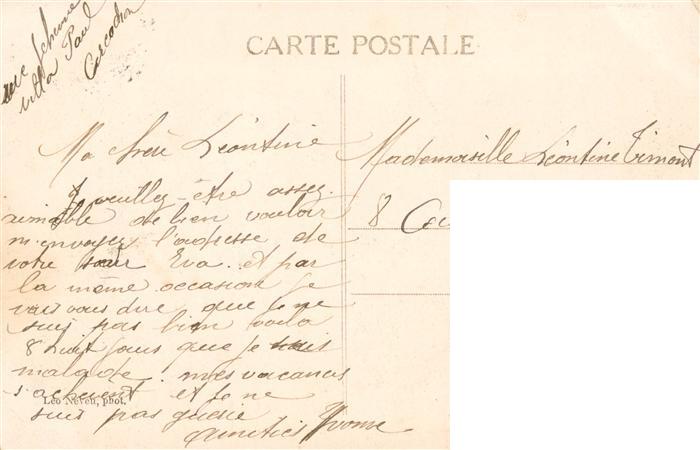 rue
villa Paul
CARTE POSTALE
Ma chère Léontine
veuillez-être assez
aimable de bien vouloir
m'envoyez l'adresse de
votre sœur Eva. et par
la même occasion je
vais vous dire que je ne
suis pas bien voila
8 huit jours que je suis
malade. mes vacances
s'achevent et je ne
suis pas guérie
amitiés Yvonne
Léo Neveu, phot.
Mademoiselle Léontine Timont
8